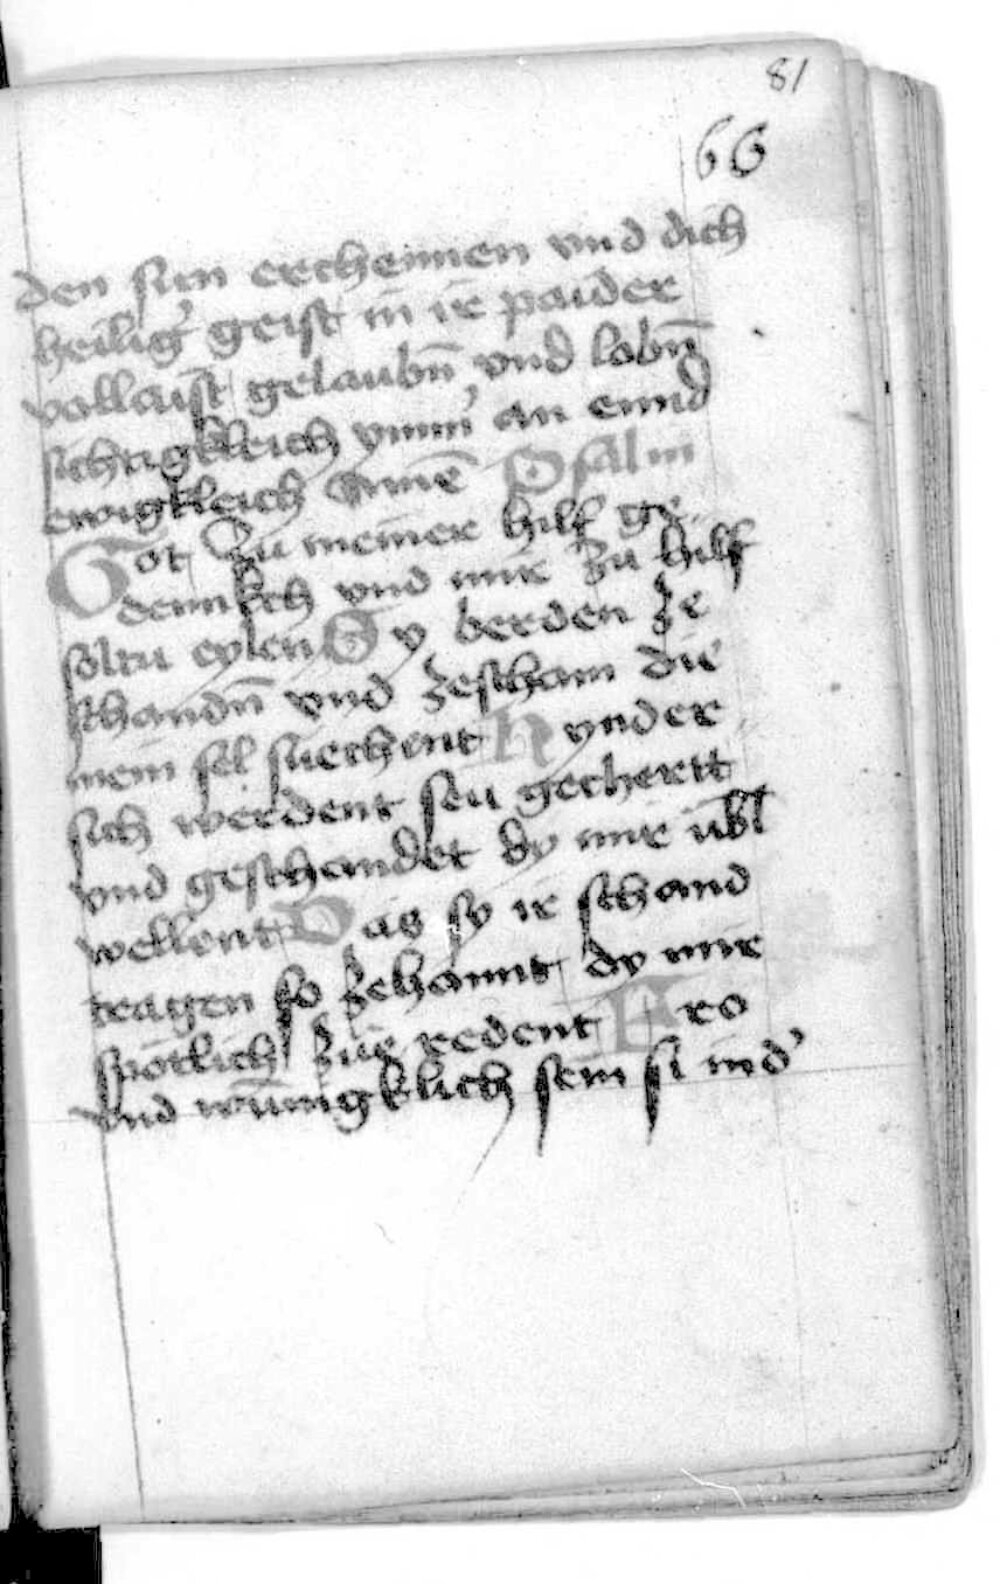 81
66
den sun erchennen vnd dich
heilig' geist in ir paider
vollaist gelaubn̄ vnd lobn̄
sichtigkleich ymm' an ennd
ewigkleich Amē Psalm
Got zu meiner hilf ge
dennkch vnd mir zu hilf
soltu eylen Sy berden ze
schandn̄ vnd zescham die
mein sel suechent Hynder
sich werdent seu gechertt
vnd geschendet dy mir übl
wellent Das sy ir schand
tragen so zehannt dy mir
spötlich zue redent Fro
vnd wūnigklich sein si ind'